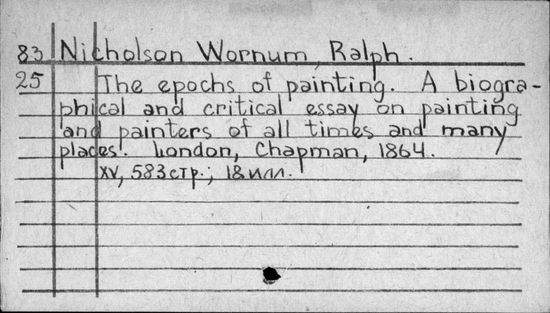 83 Nicholson Wornum, Ralph.
25 The epochs of painting. A biogra-
phical and critical essay on painting
and painters of all times and many
places. London, Chapman, 1864.
XV, 583 стр.; 18 илл.